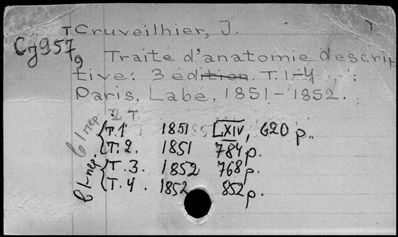 TCruveilhier, J.
Cy957
9
Traite d'anatomie descrip
tive. 3 édition. T. 1-4
Paris, Labé, 1851-1852.
2 T.
в 1-пер { T. 1 1851 LXIV, 620 p.
T. 2. 1851 784 p.
в 1-пер { T. 3. 1852 768 p.
T. 4. 1852 852 p.